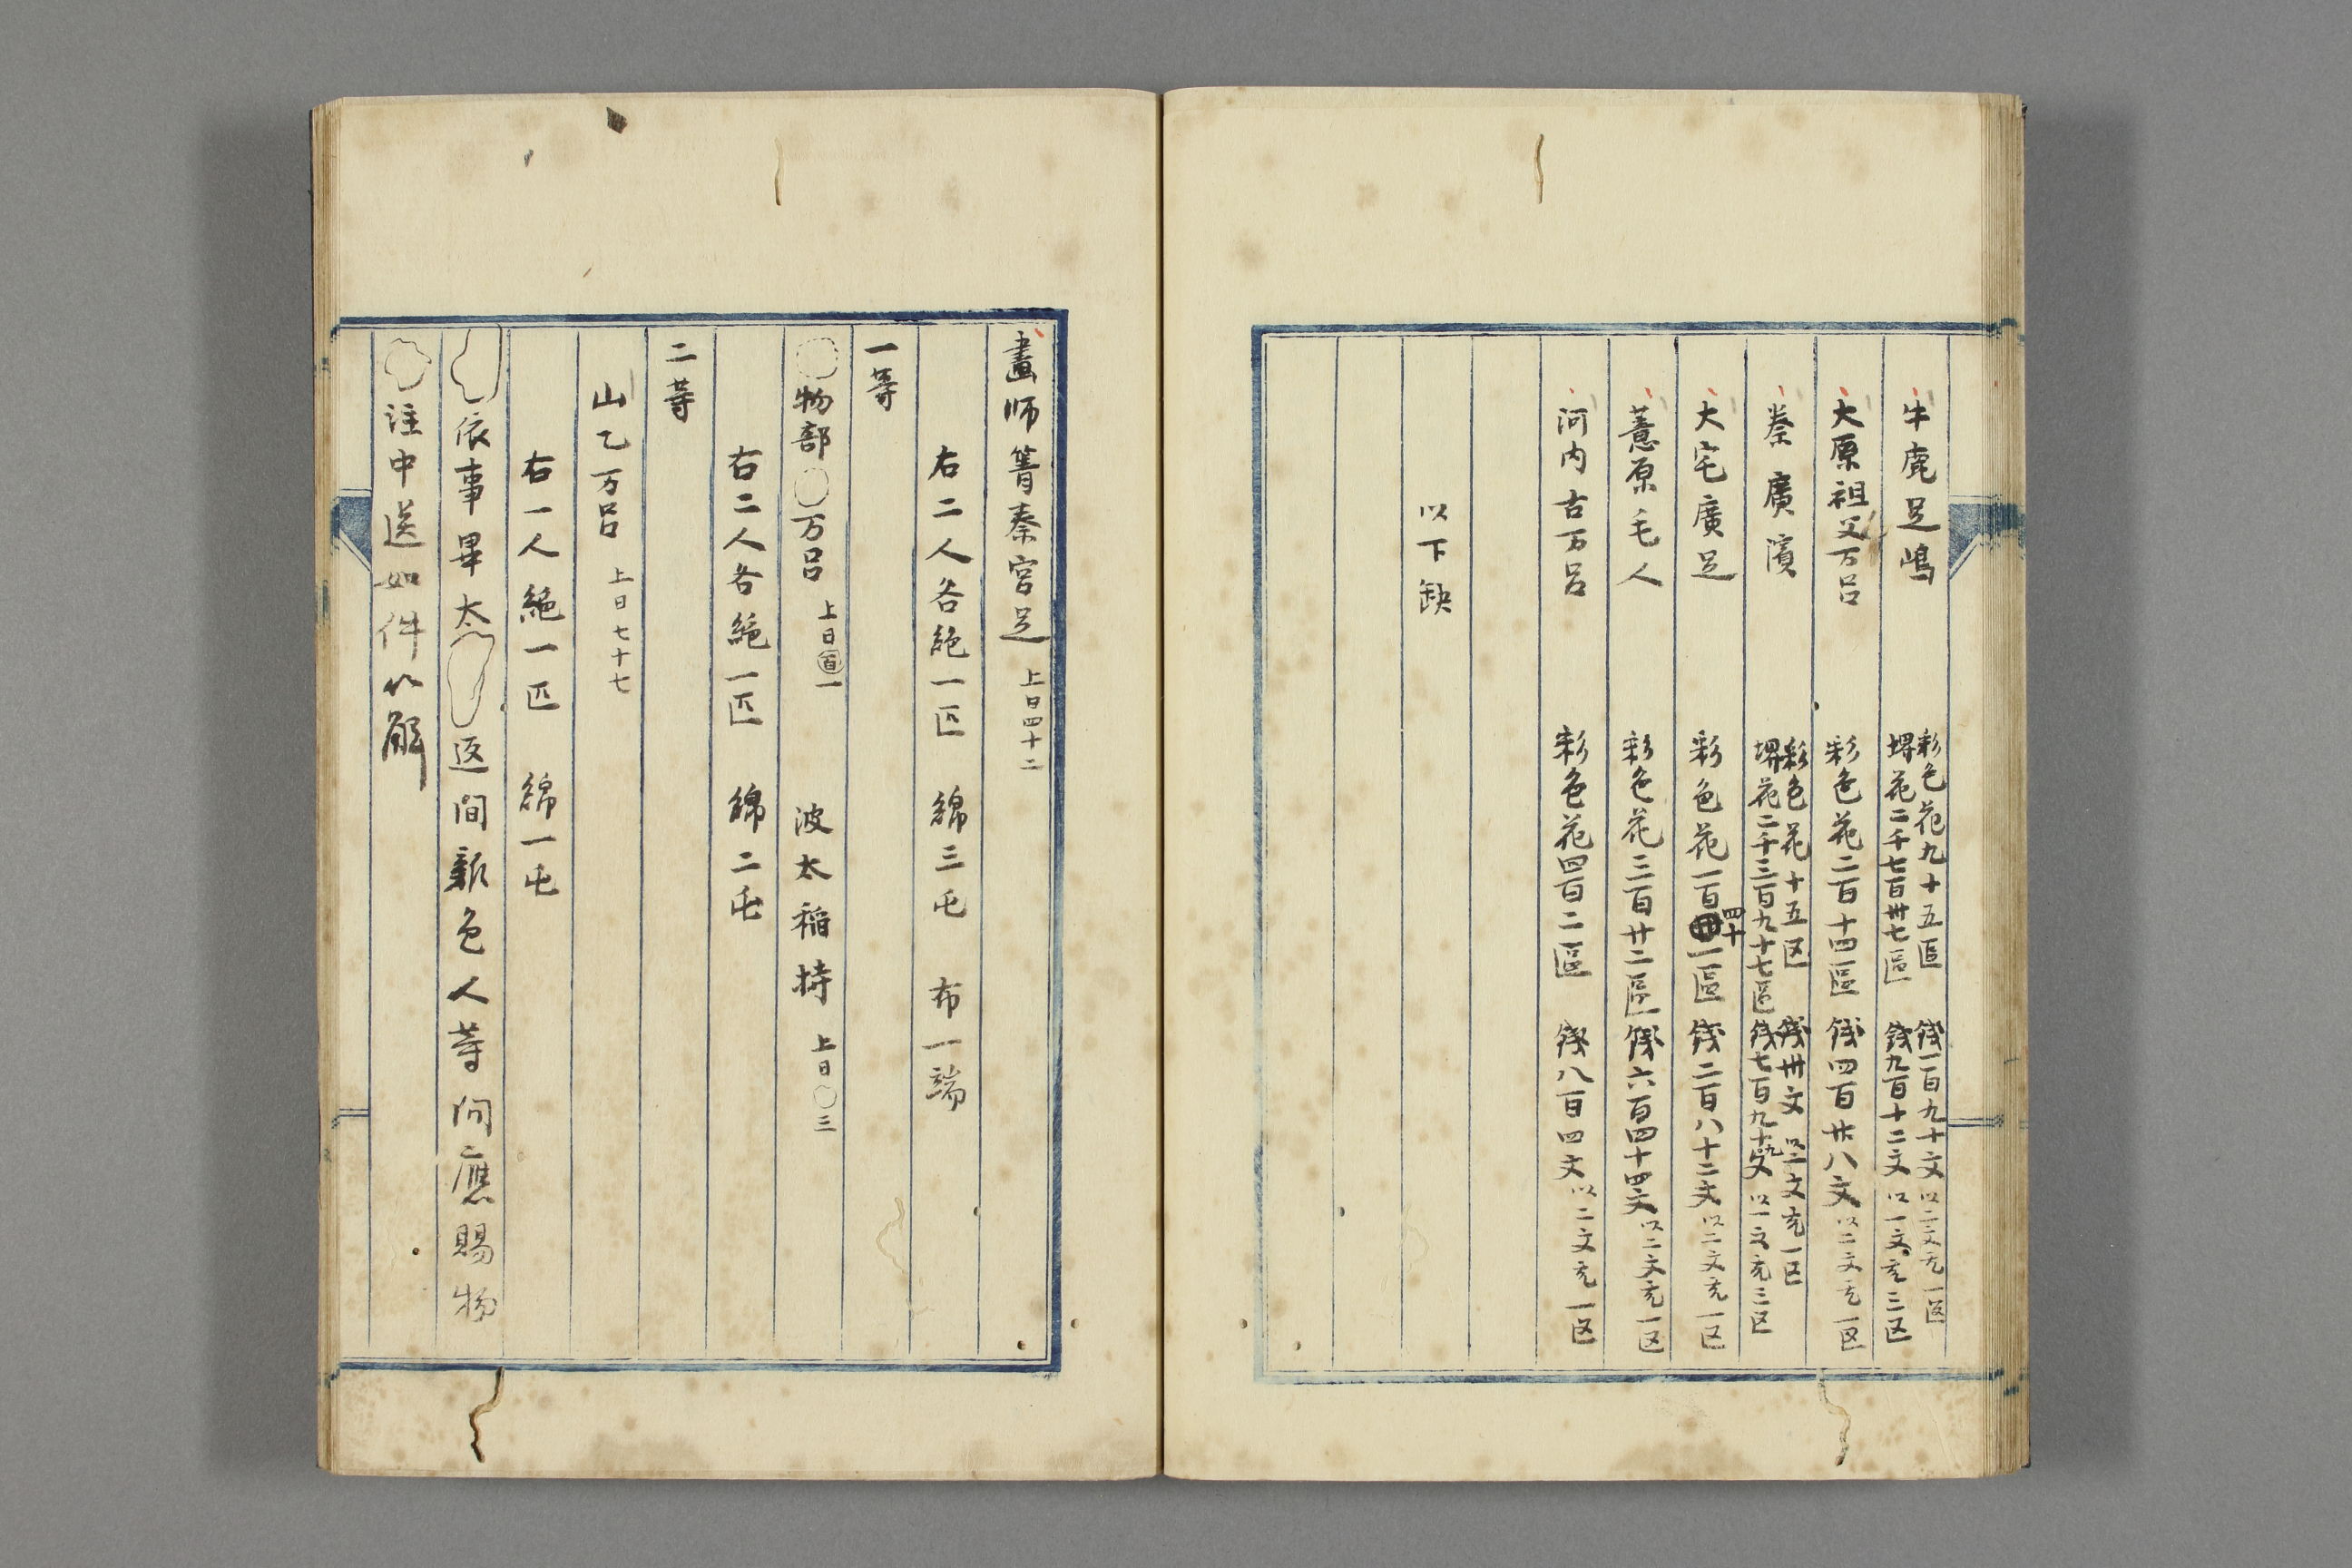 牛鹿足嶋　彩色花九十五區　錢一百九十文以二文充一区
堺花二千七百卅七區　錢九百十二文以一文充三区
大原祖父万呂　彩色花二百十四區　錢四百廿八文以二文充一区
秦廣濱　彩色花十五区　錢卅文以二文充一区
堺花二千三百九十七區　錢七百九十九文以一文充三区
大宅廣足　彩色花一百四十一區　錢二百八十二文以二文充一区
薏原毛人　彩色花三百廿二區　錢六百四十四文以二文充一区
河内古万呂　彩色花四百二區　錢八百四文以二文充一区
以下缺
畫師簀秦宮足　上日四十二
右二人各絁一匹　綿三屯　布一端
一等
○物部○万呂　上日百一　波太稲持　上日○三
右二人各絁一匹　綿二屯
二等
山乙万呂　上日七十七
右一人絁一匹　綿一屯
依事畢太　返間新色人等間應賜物
注申送如件以解